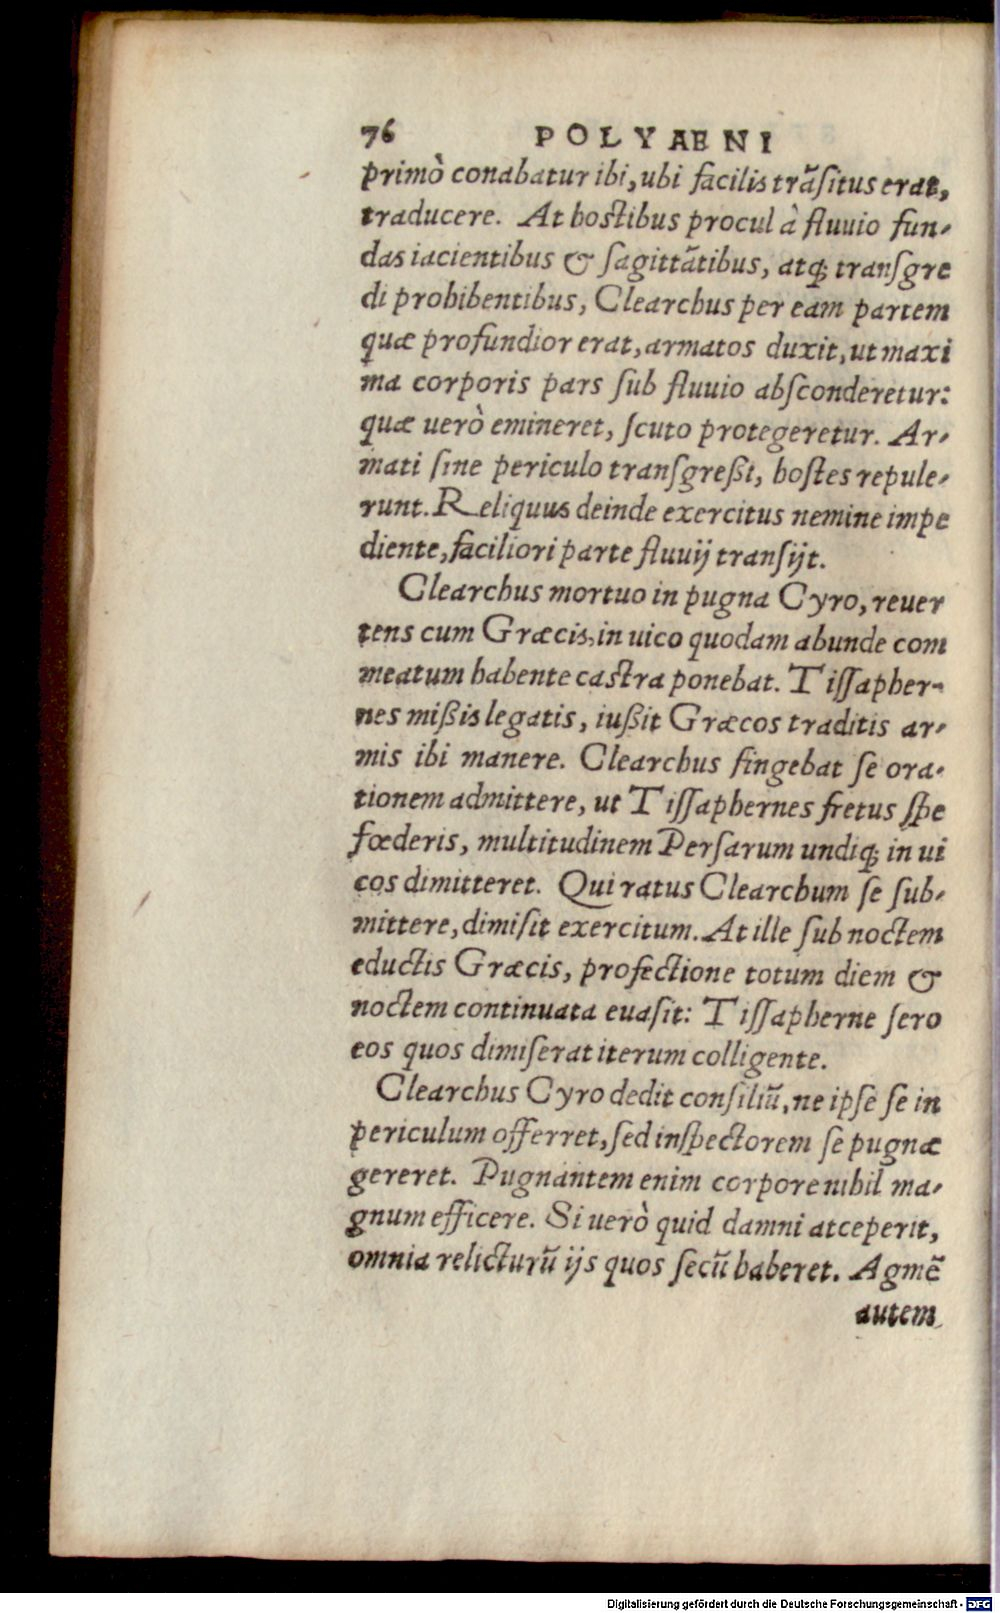 76 POLYAENI
primò conabatur ibi, ubi facilis trãsitus erat,
traducere. At hostibus procul à fluuio fun-
das iacientibus & sagittãtibus, atq; transgre
di prohibentibus, Clearchus per eam partem
quæ profundior erat, armatos duxit, ut maxi
ma corporis pars sub fluuio absconderetur:
quæ uerò emineret, scuto protegeretur. Ar-
mati sine periculo transgreßi, hostes repule-
runt. Reliquus deinde exercitus nemine impe
diente, faciliori parte fluuij transijt.
Clearchus mortuo in pugna Cyro, reuer
tens cum Græcis, in uico quodam abunde com
meatum habente castra ponebat. Tissapher-
nes mißis legatis, iußit Græcos traditis ar-
mis ibi manere. Clearchus fingebat se ora-
tionem admittere, ut Tissaphernes fretus spe
fœderis, multitudinem Persarum undiq; in ui
cos dimitteret. Qui ratus Clearchum se sub-
mittere, dimisit exercitum. At ille sub noctem
eductis Græcis, profectione totum diem &
noctem continuata euasit: Tissapherne sero
eos quos dimiserat iterum colligente.
Clearchus Cyro dedit consiliũ, ne ipse se in
periculum offerret, sed inspectorem se pugnæ
gereret. Pugnantem enim corpore nihil ma-
gnum efficere. Si uerò quid damni atceperit,
omnia relicturũ ijs quos secũ haberet. Agmẽ
autem
Digitalisierung gefördert durch die Deutsche Forschungsgemeinschaft - DFG